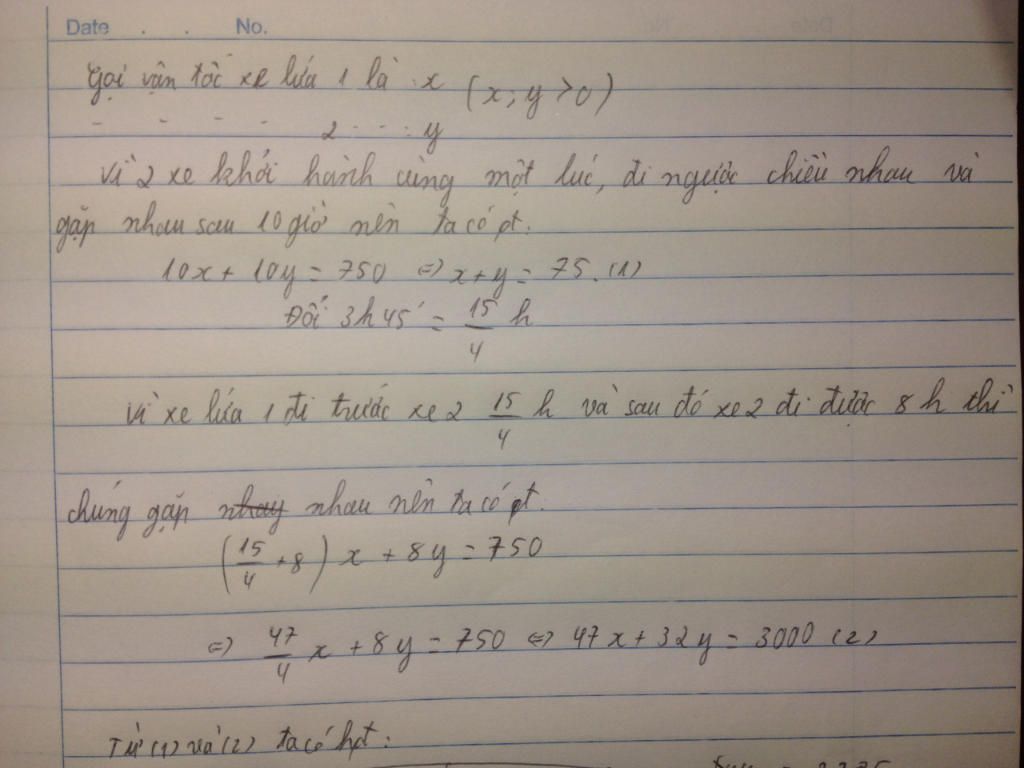 Date . . No.
Gọi vận tốc xe lửa 1 là : x (x; y > 0)
- - - - 2 - - : y
Vì 2 xe khởi hành cùng một lúc, đi ngược chiều nhau và
gặp nhau sau 10 giờ nên ta có pt:
10x + 10y = 750 ⇔ x + y = 75. (1)
Đổi 3h45' = 15/4 h
Vì xe lửa 1 đi trước xe 2 15/4 h và sau đó xe 2 đi được 8 h thì
chúng gặp nhau nên ta có pt.
(15/4 + 8) x + 8y = 750
⇔ 47/4 x + 8y = 750 ⇔ 47x + 32y = 3000 (2)
Từ (1) và (2) ta có hpt: